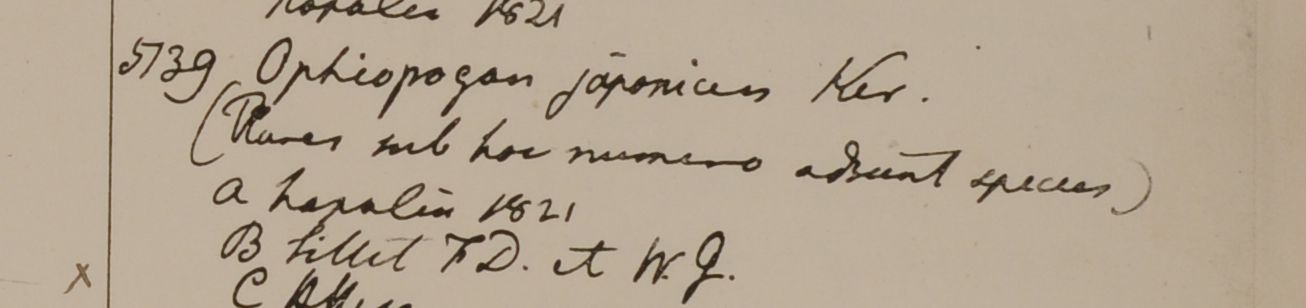 Napalia 1821
5139 Ophiopogon japonicus Ker.
(Plures sub hoc numero adsunt species)
a Napalia 1821
B Sillet F.D. et W.G.
C